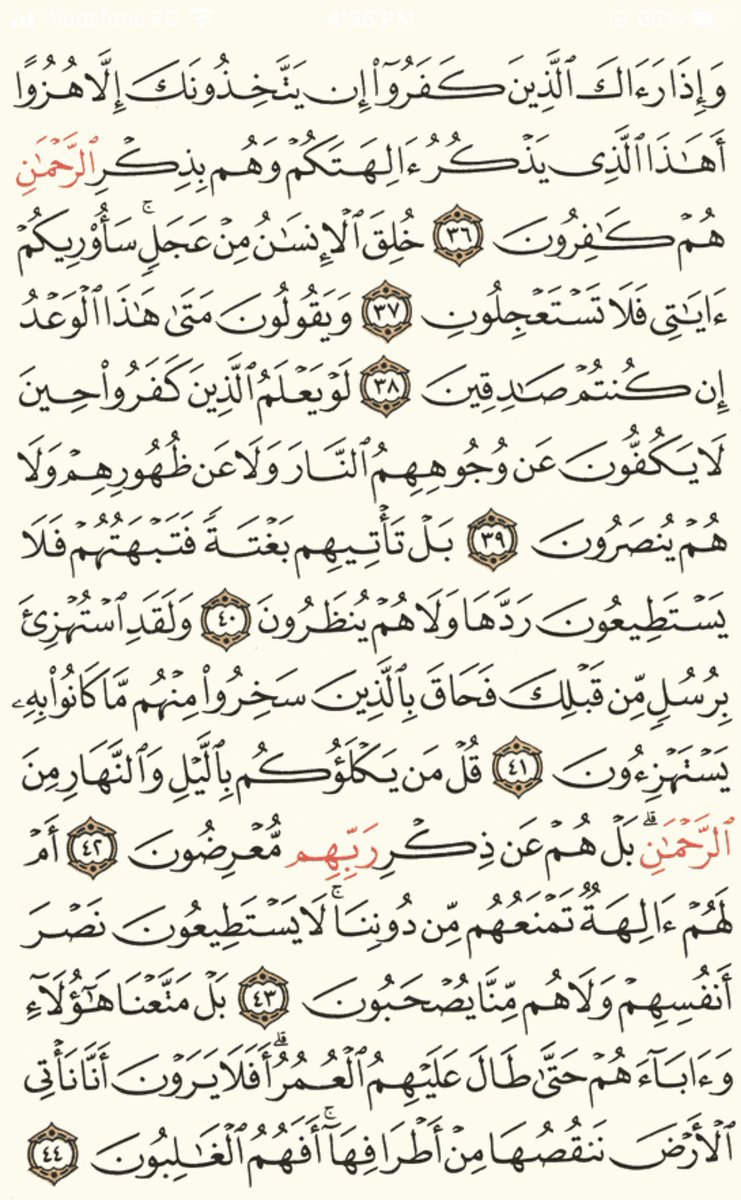 Vodafone EG 4:35 PM 65%
وَإِذَا رَءَاكَ ٱلَّذِينَ كَفَرُوٓا۟ إِن يَتَّخِذُونَكَ إِلَّا هُزُوًا
أَهَـٰذَا ٱلَّذِى يَذْكُرُ ءَالِهَتَكُمْ وَهُم بِذِكْرِ ٱلرَّحْمَـٰنِ
هُمْ كَـٰفِرُونَ ٣٦ خُلِقَ ٱلْإِنسَـٰنُ مِنْ عَجَلٍ ۚ سَأُو۟رِيكُمْ
ءَايَـٰتِى فَلَا تَسْتَعْجِلُونِ ٣٧ وَيَقُولُونَ مَتَىٰ هَـٰذَا ٱلْوَعْدُ
إِن كُنتُمْ صَـٰدِقِينَ ٣٨ لَوْ يَعْلَمُ ٱلَّذِينَ كَفَرُوا۟ حِينَ
لَا يَكُفُّونَ عَن وُجُوهِهِمُ ٱلنَّارَ وَلَا عَن ظُهُورِهِمْ وَلَا
هُمْ يُنصَرُونَ ٣٩ بَلْ تَأْتِيهِم بَغْتَةً فَتَبْهَتُهُمْ فَلَا
يَسْتَطِيعُونَ رَدَّهَا وَلَا هُمْ يُنظَرُونَ ٤٠ وَلَقَدِ ٱسْتُهْزِئَ
بِرُسُلٍ مِّن قَبْلِكَ فَحَاقَ بِٱلَّذِينَ سَخِرُوا۟ مِنْهُم مَّا كَانُوا۟ بِهِۦ
يَسْتَهْزِءُونَ ٤١ قُلْ مَن يَكْلَؤُكُم بِٱلَّيْلِ وَٱلنَّهَارِ مِنَ
ٱلرَّحْمَـٰنِ ۗ بَلْ هُمْ عَن ذِكْرِ رَبِّهِم مُّعْرِضُونَ ٤٢ أَمْ
لَهُمْ ءَالِهَةٌ تَمْنَعُهُم مِّن دُونِنَا ۚ لَا يَسْتَطِيعُونَ نَصْرَ
أَنفُسِهِمْ وَلَا هُم مِّنَّا يُصْحَبُونَ ٤٣ بَلْ مَتَّعْنَا هَـٰٓؤُلَآءِ
وَءَابَآءَهُمْ حَتَّىٰ طَالَ عَلَيْهِمُ ٱلْعُمُرُ ۗ أَفَلَا يَرَوْنَ أَنَّا نَأْتِى
ٱلْأَرْضَ نَنقُصُهَا مِنْ أَطْرَافِهَآ ۚ أَفَهُمُ ٱلْغَـٰلِبُونَ ٤٤